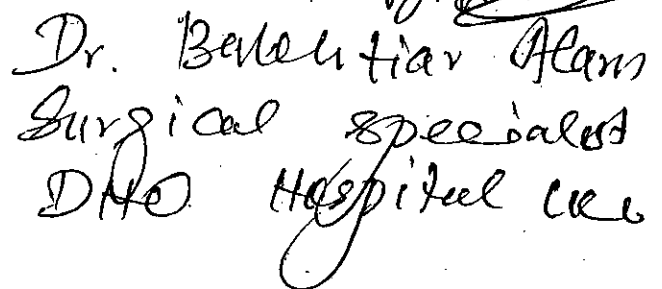 Dr. Bakhtiar Alam
Surgical specialist
DHQ Hospital